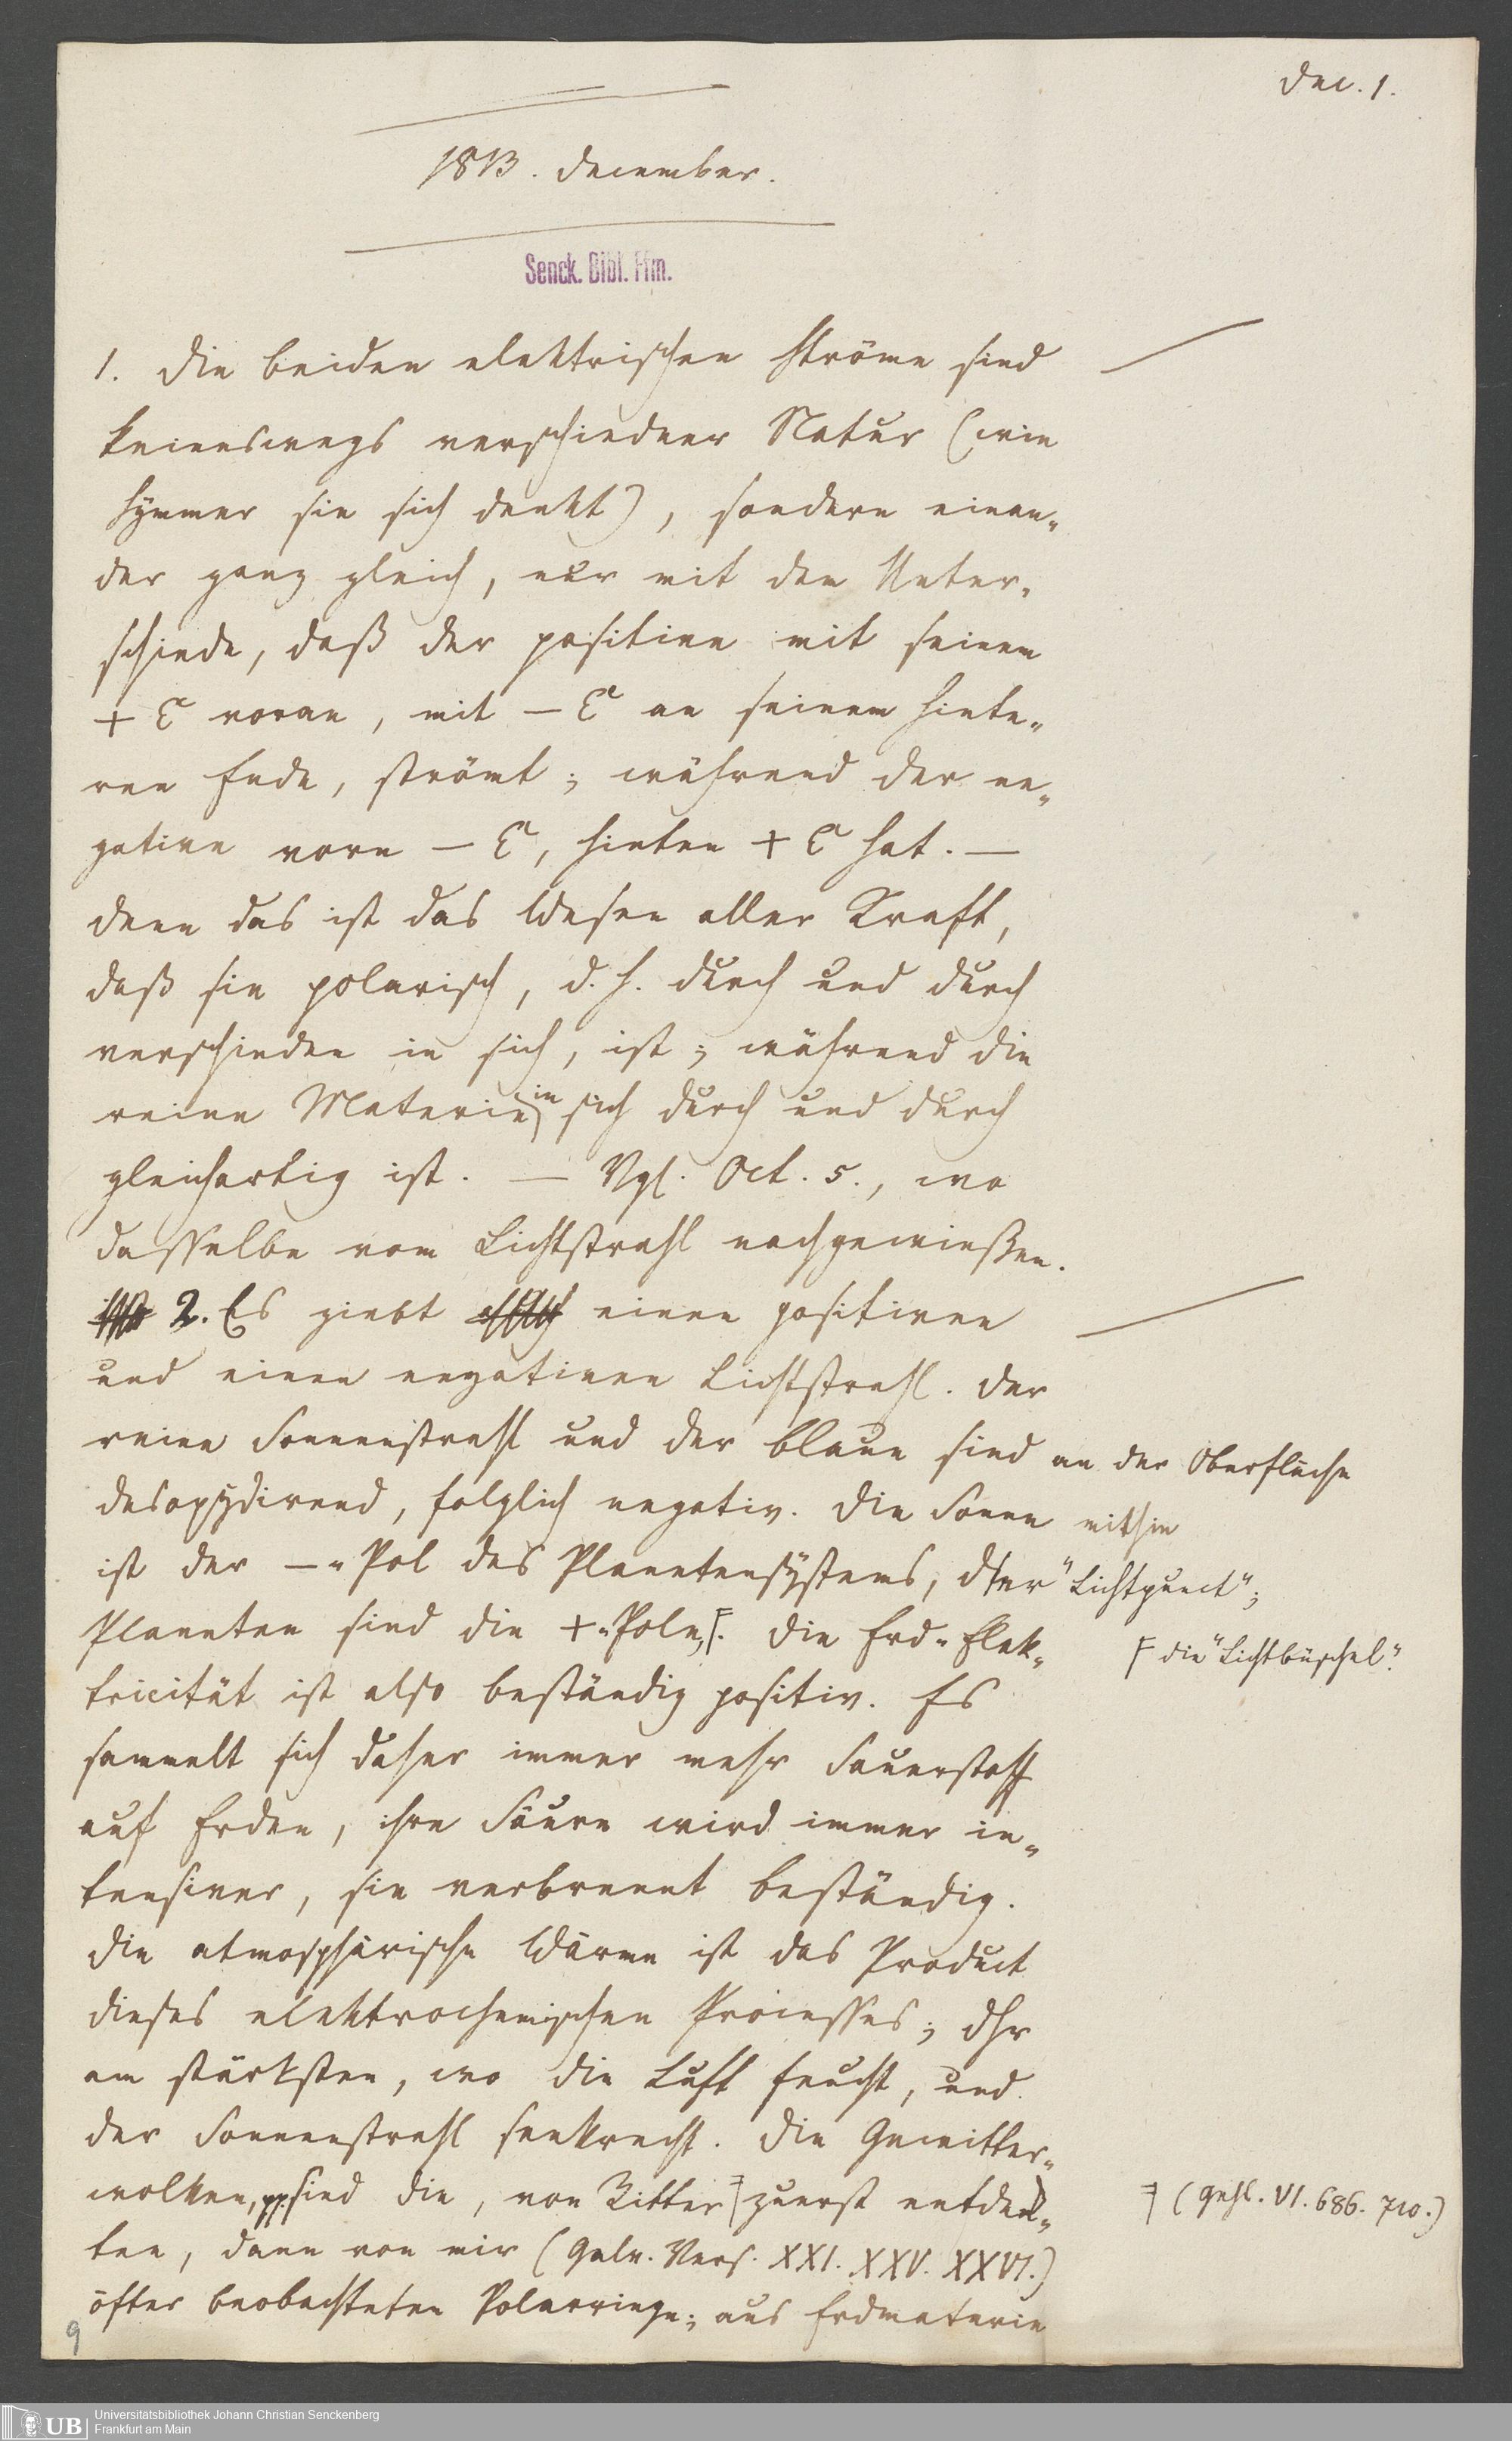 Dec. 1.
1813. December.
Senck. Bibl. Ffm.
1. Die beiden elektrischen Ströme sind
keineswegs verschiedner Natur (wie
Symmer sie sich denkt), sondern einan-
der ganz gleich, nur mit dem Unter-
schiede, daß der positive mit seinem
+ E voran, mit – E an seinem hinte-
ren Ende, strömt; während der ne-
gative vorn – E, hinten + E hat. –
Denn das ist das Wesen aller Kraft,
daß sie polarisch, d. h. durch und durch
verschieden in sich, ist; während die
reine Materie in sich durch und durch
gleichartig ist. – Vgl. Oct. 5., wo
dasselbe vom Lichtstrahl nachgewießen.
2. Es giebt einen positiven
und einen negativen Lichtstrahl. Der
reine Sonnenstrahl und der blaue sind an der Oberfläche
desoxydirend, folglich negativ. Die Sonne mithin
ist der –-Pol des Planetensystems, der "Lichtpunct";
Planeten sind die +-Pole, F. Die Erd-Elek-
F die "Lichtbüschel".
tricität ist also beständig positiv. Es
sammelt sich daher immer mehr Sauerstoff
auf Erden, ihre Säure wird immer in-
tensiver, sie verbrennt beständig.
Die atmosphärische Wärme ist das Product
dieses elektrochemischen Processes; dhr
am stärksten, wo die Luft feucht, und
der Sonnenstrahl senkrecht. Die Gewitter-
wolken, pp. sind die, von Ritter zuerst entdeck-
(Gehl. VI. 686. 710.)
ten, dann von mir (Galv. Vers. XXI. XXV. XXVI.)
öfter beobachteten Polarringe; aus Erdmaterie
9
UB
Universitätsbibliothek Johann Christian Senckenberg
Frankfurt am Main